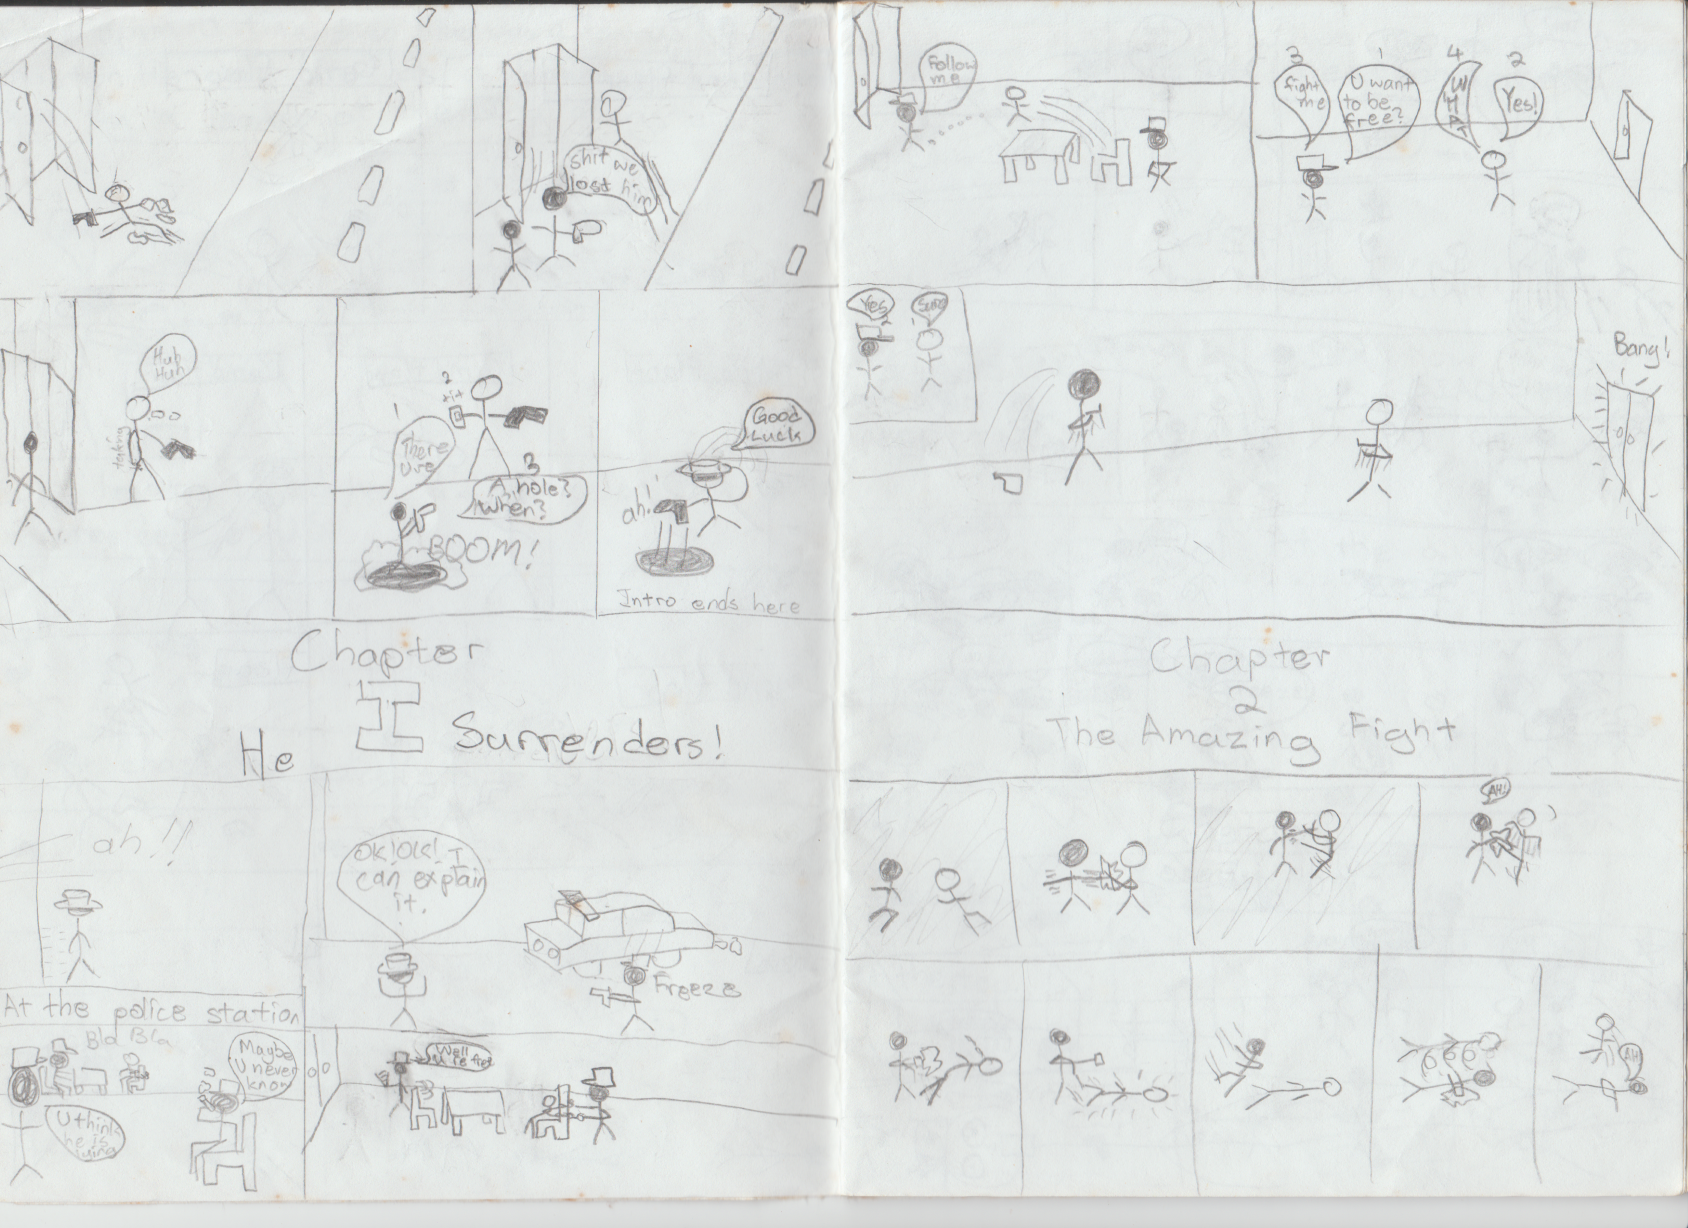 shit we
lost him
Huh
Huh
taking
1
There
U're
2
3
A hole?
When?
BOOM!
Good
Luck
ah!
Intro ends here
Chapter
I
He Surrenders!
ah!!
OK! OK! I
can explain
it.
Freeze
At the police station
Bla Bla
Maybe
U never
know
U think
he is
lying
Well
u're free
Follow
me
3
fight
me
1
U want
to be
free?
4
WHAT
2
Yes!
Yes
Sure
Bang!
Chapter
2
The Amazing Fight
AH!
AH!